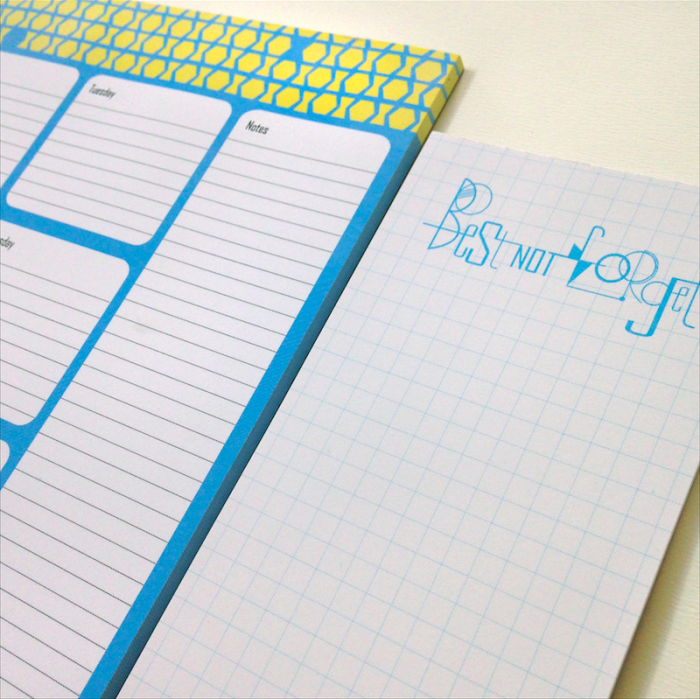 Tuesday
Notes
sday
Best not forget